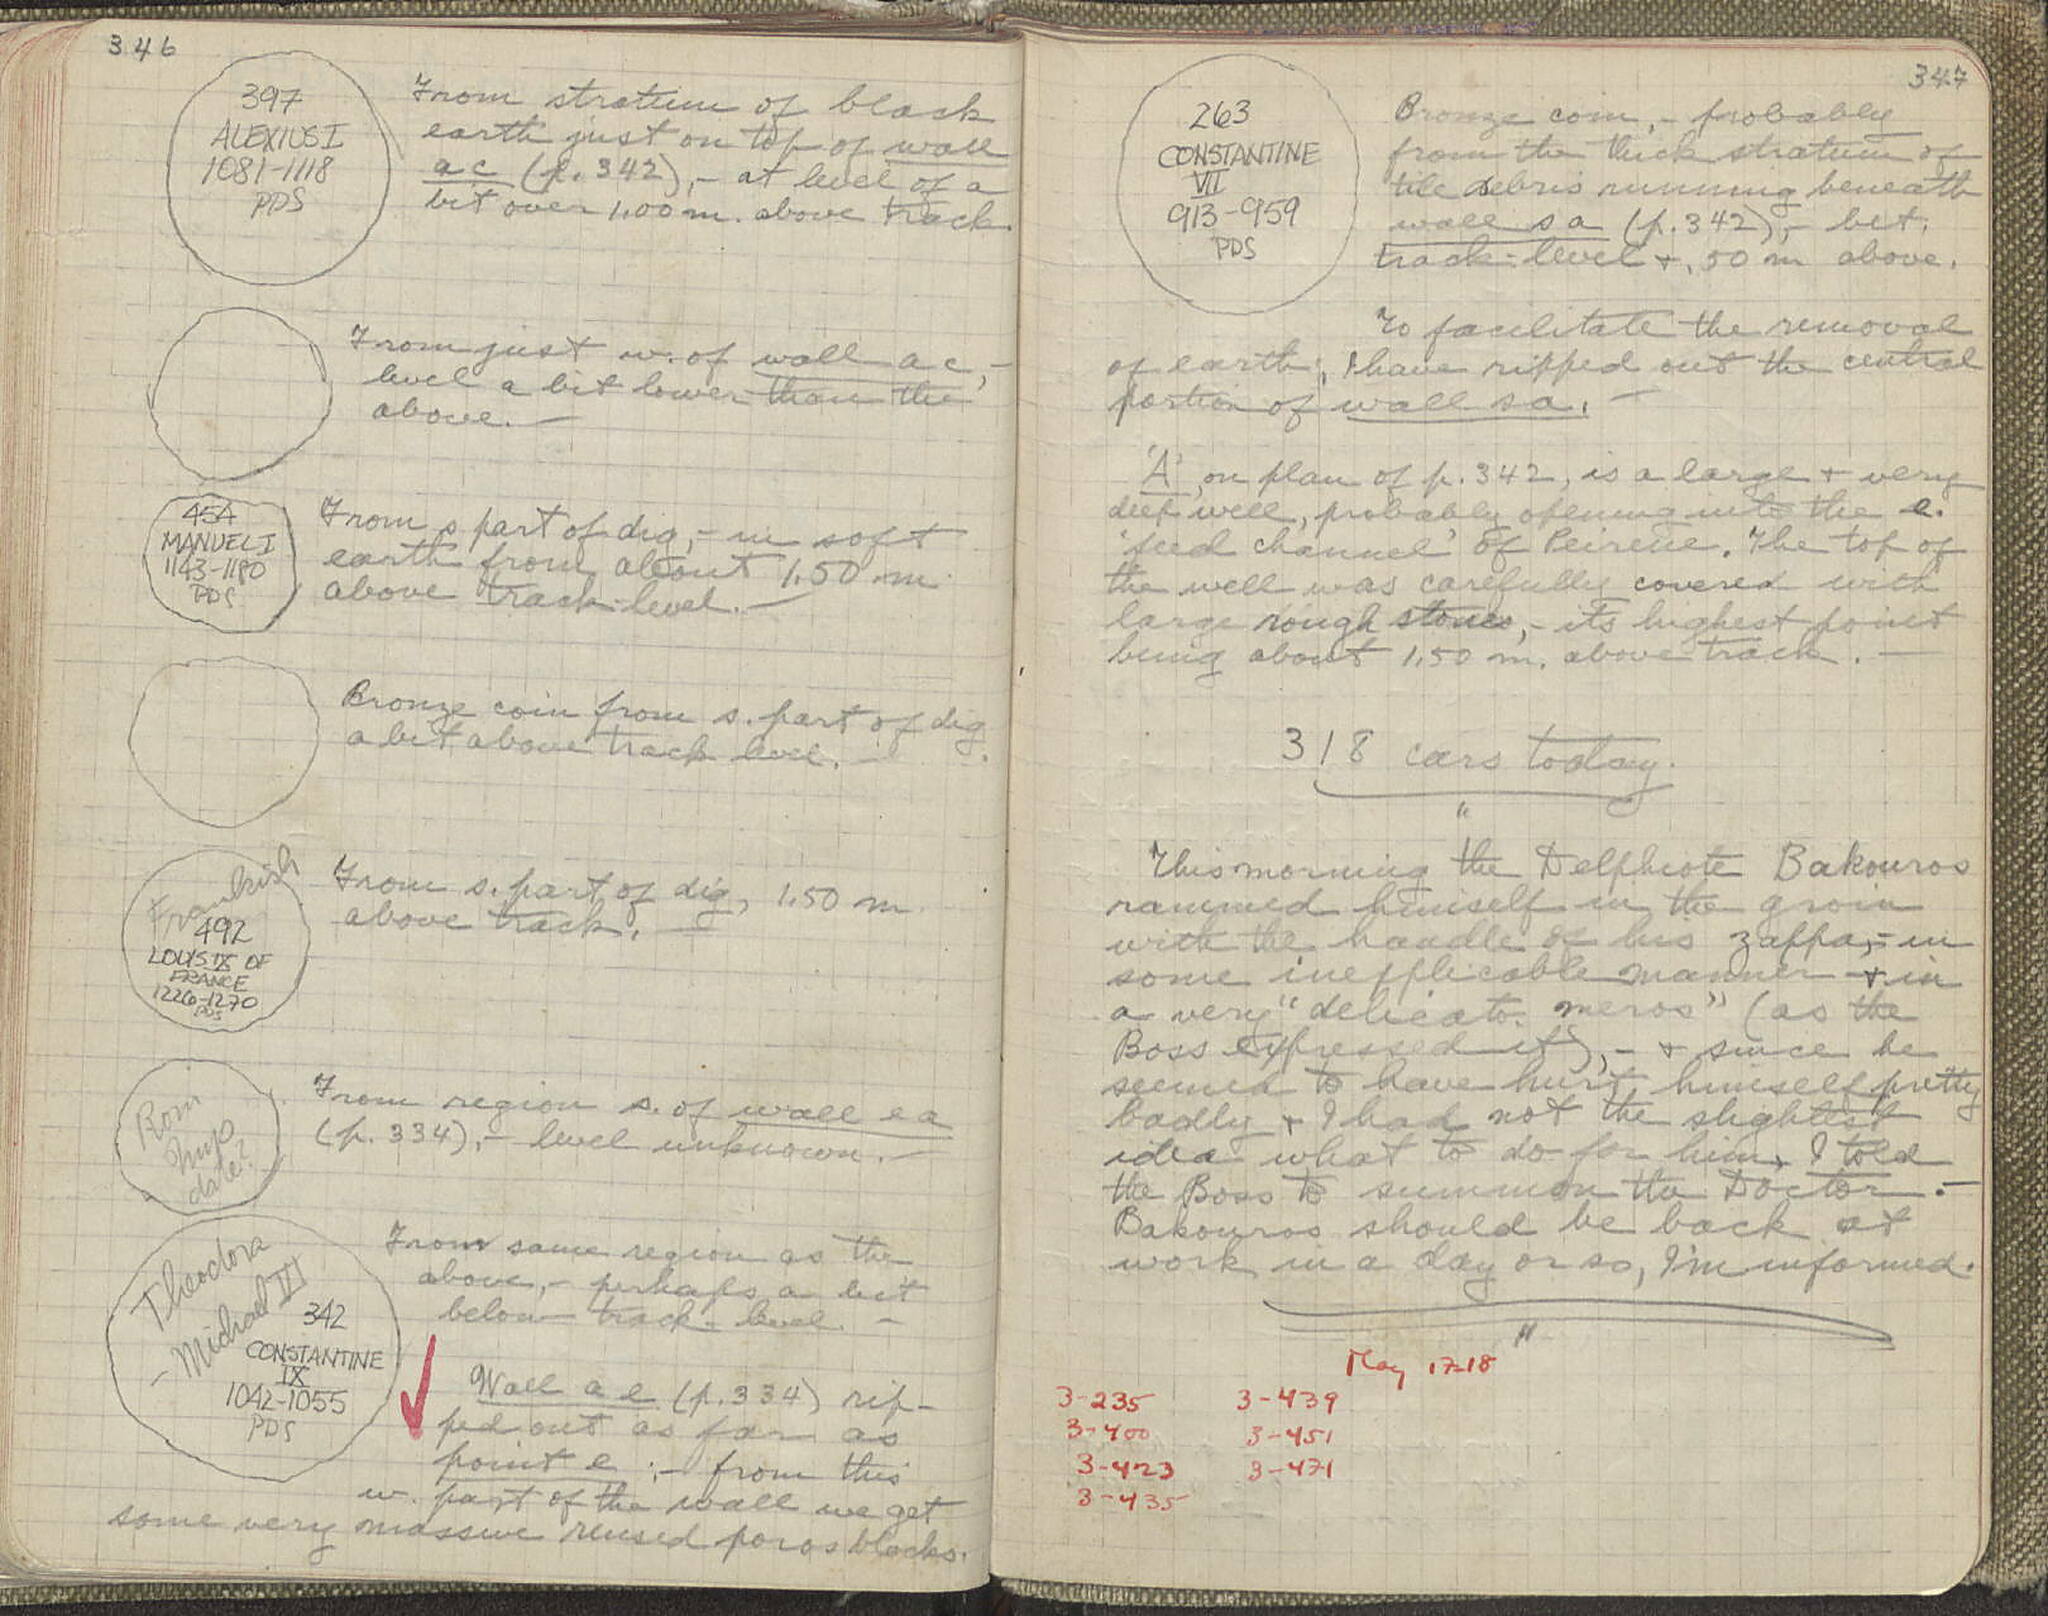 346
397
ALEXIUS I
1081-1118
PDS
From stratum of black
earth just on top of wall
a c (p. 342), - at level of a
bit over 1.00 m. above track.
From just w. of wall a c, -
level a bit lower than the
above. -
454
MANUEL I
1143-1180
PDS
From s part of dig, - in soft
earth from about 1.50 m.
above track-level. -
Bronze coin from s. part of dig
a bit above track level. -
Frankish
492
LOUIS IX OF
FRANCE
1226-1270
PDS
From s. part of dig, 1.50 m.
above track. -
Rom
Imp
date?
From region s. of wall e a
(p. 334), - level unknown. -
Theodora
- Michael VI
342
CONSTANTINE
IX
1042-1055
PDS
From same region as the
above, - perhaps a bit
below track-level. -
Wall a e (p. 334) rip-
ped out as far as
point e ; - from this
w. part of the wall we get
some very massive reused poros blocks.
347
263
CONSTANTINE
VII
913-959
PDS
Bronze coin, - probably
from the thick stratum of
tile debris running beneath
wall s a (p. 342), - bet.
track-level + .50 m above.
To facilitate the removal
of earth, I have ripped out the central
portion of wall s a. -
'A', on plan of p. 342, is a large + very
deep well, probably opening into the e.
'feed channel' of Peirene. The top of
the well was carefully covered with
large rough stones, - its highest point
being about 1.50 m. above track. -
318 cars today.
"
This morning the Delphiote Bakouros
rammed himself in the groin
with the handle of his zappa, - in
some inexplicable manner + in
a very "delicato meros" (as the
Boss expressed it), - + since he
seemed to have hurt himself pretty
badly + I had not the slightest
idea what to do for him, I told
the Boss to summon the Doctor. -
Bakouros should be back at
work in a day or so, I'm informed.
"
May 17-18
3-235 3-439
3-400 3-451
3-423 3-471
3-435